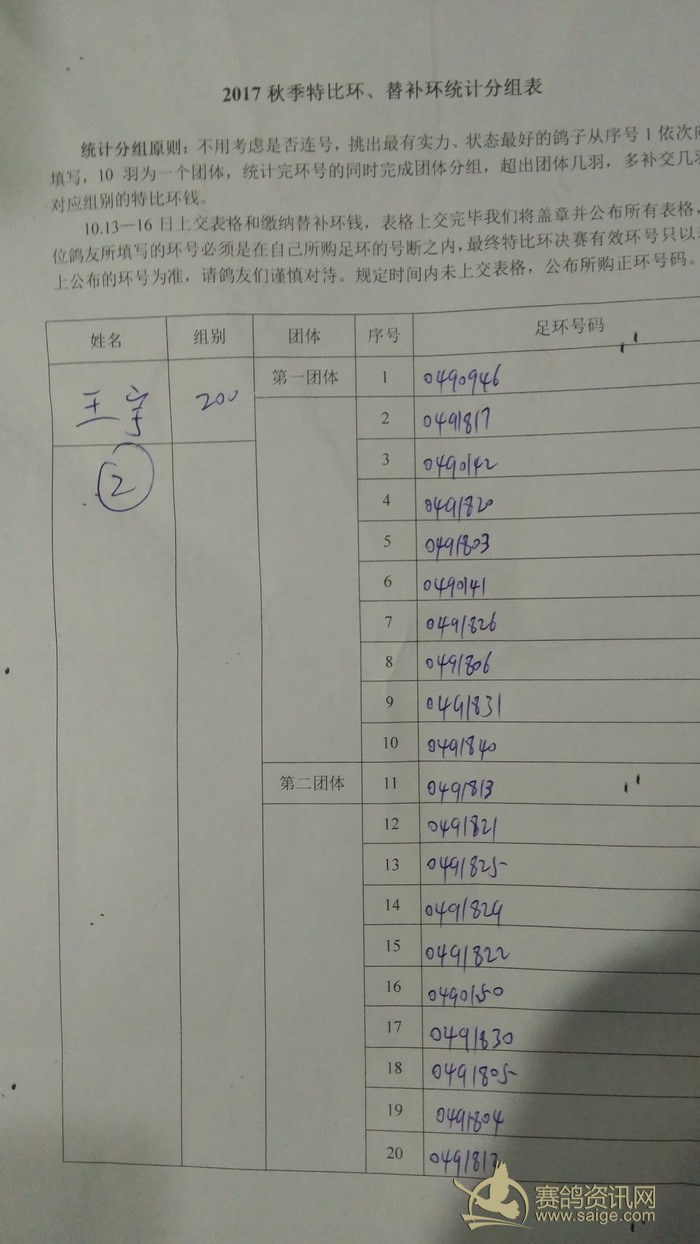 2017 秋季特比环、替补环统计分组表
统计分组原则：不用考虑是否连号，挑出最有实力、状态最好的鸽子从序号 1 依次向
填写，10 羽为一个团体，统计完环号的同时完成团体分组，超出团体几羽，多补交几羽
对应组别的特比环钱。
10.13—16 日上交表格和缴纳替补环钱，表格上交完毕我们将盖章并公布所有表格，
位鸽友所填写的环号必须是在自己所购足环的号断之内，最终特比环决赛有效环号只以
上公布的环号为准，请鸽友们谨慎对待。规定时间内未上交表格，公布所购正环号码。
姓名 组别 团体 序号 足环号码
王宇 200 第一团体 1 0490946
2 0491817
② 3 0490142
4 0491820
5 0491803
6 0490141
7 0491826
8 0491806
9 0491831
10 0491840
第二团体 11 0491813
12 0491821
13 0491825
14 0491829
15 0491822
16 0490150
17 0491830
18 0491805
19 0491804
20
赛鸽资讯网
www.saige.com